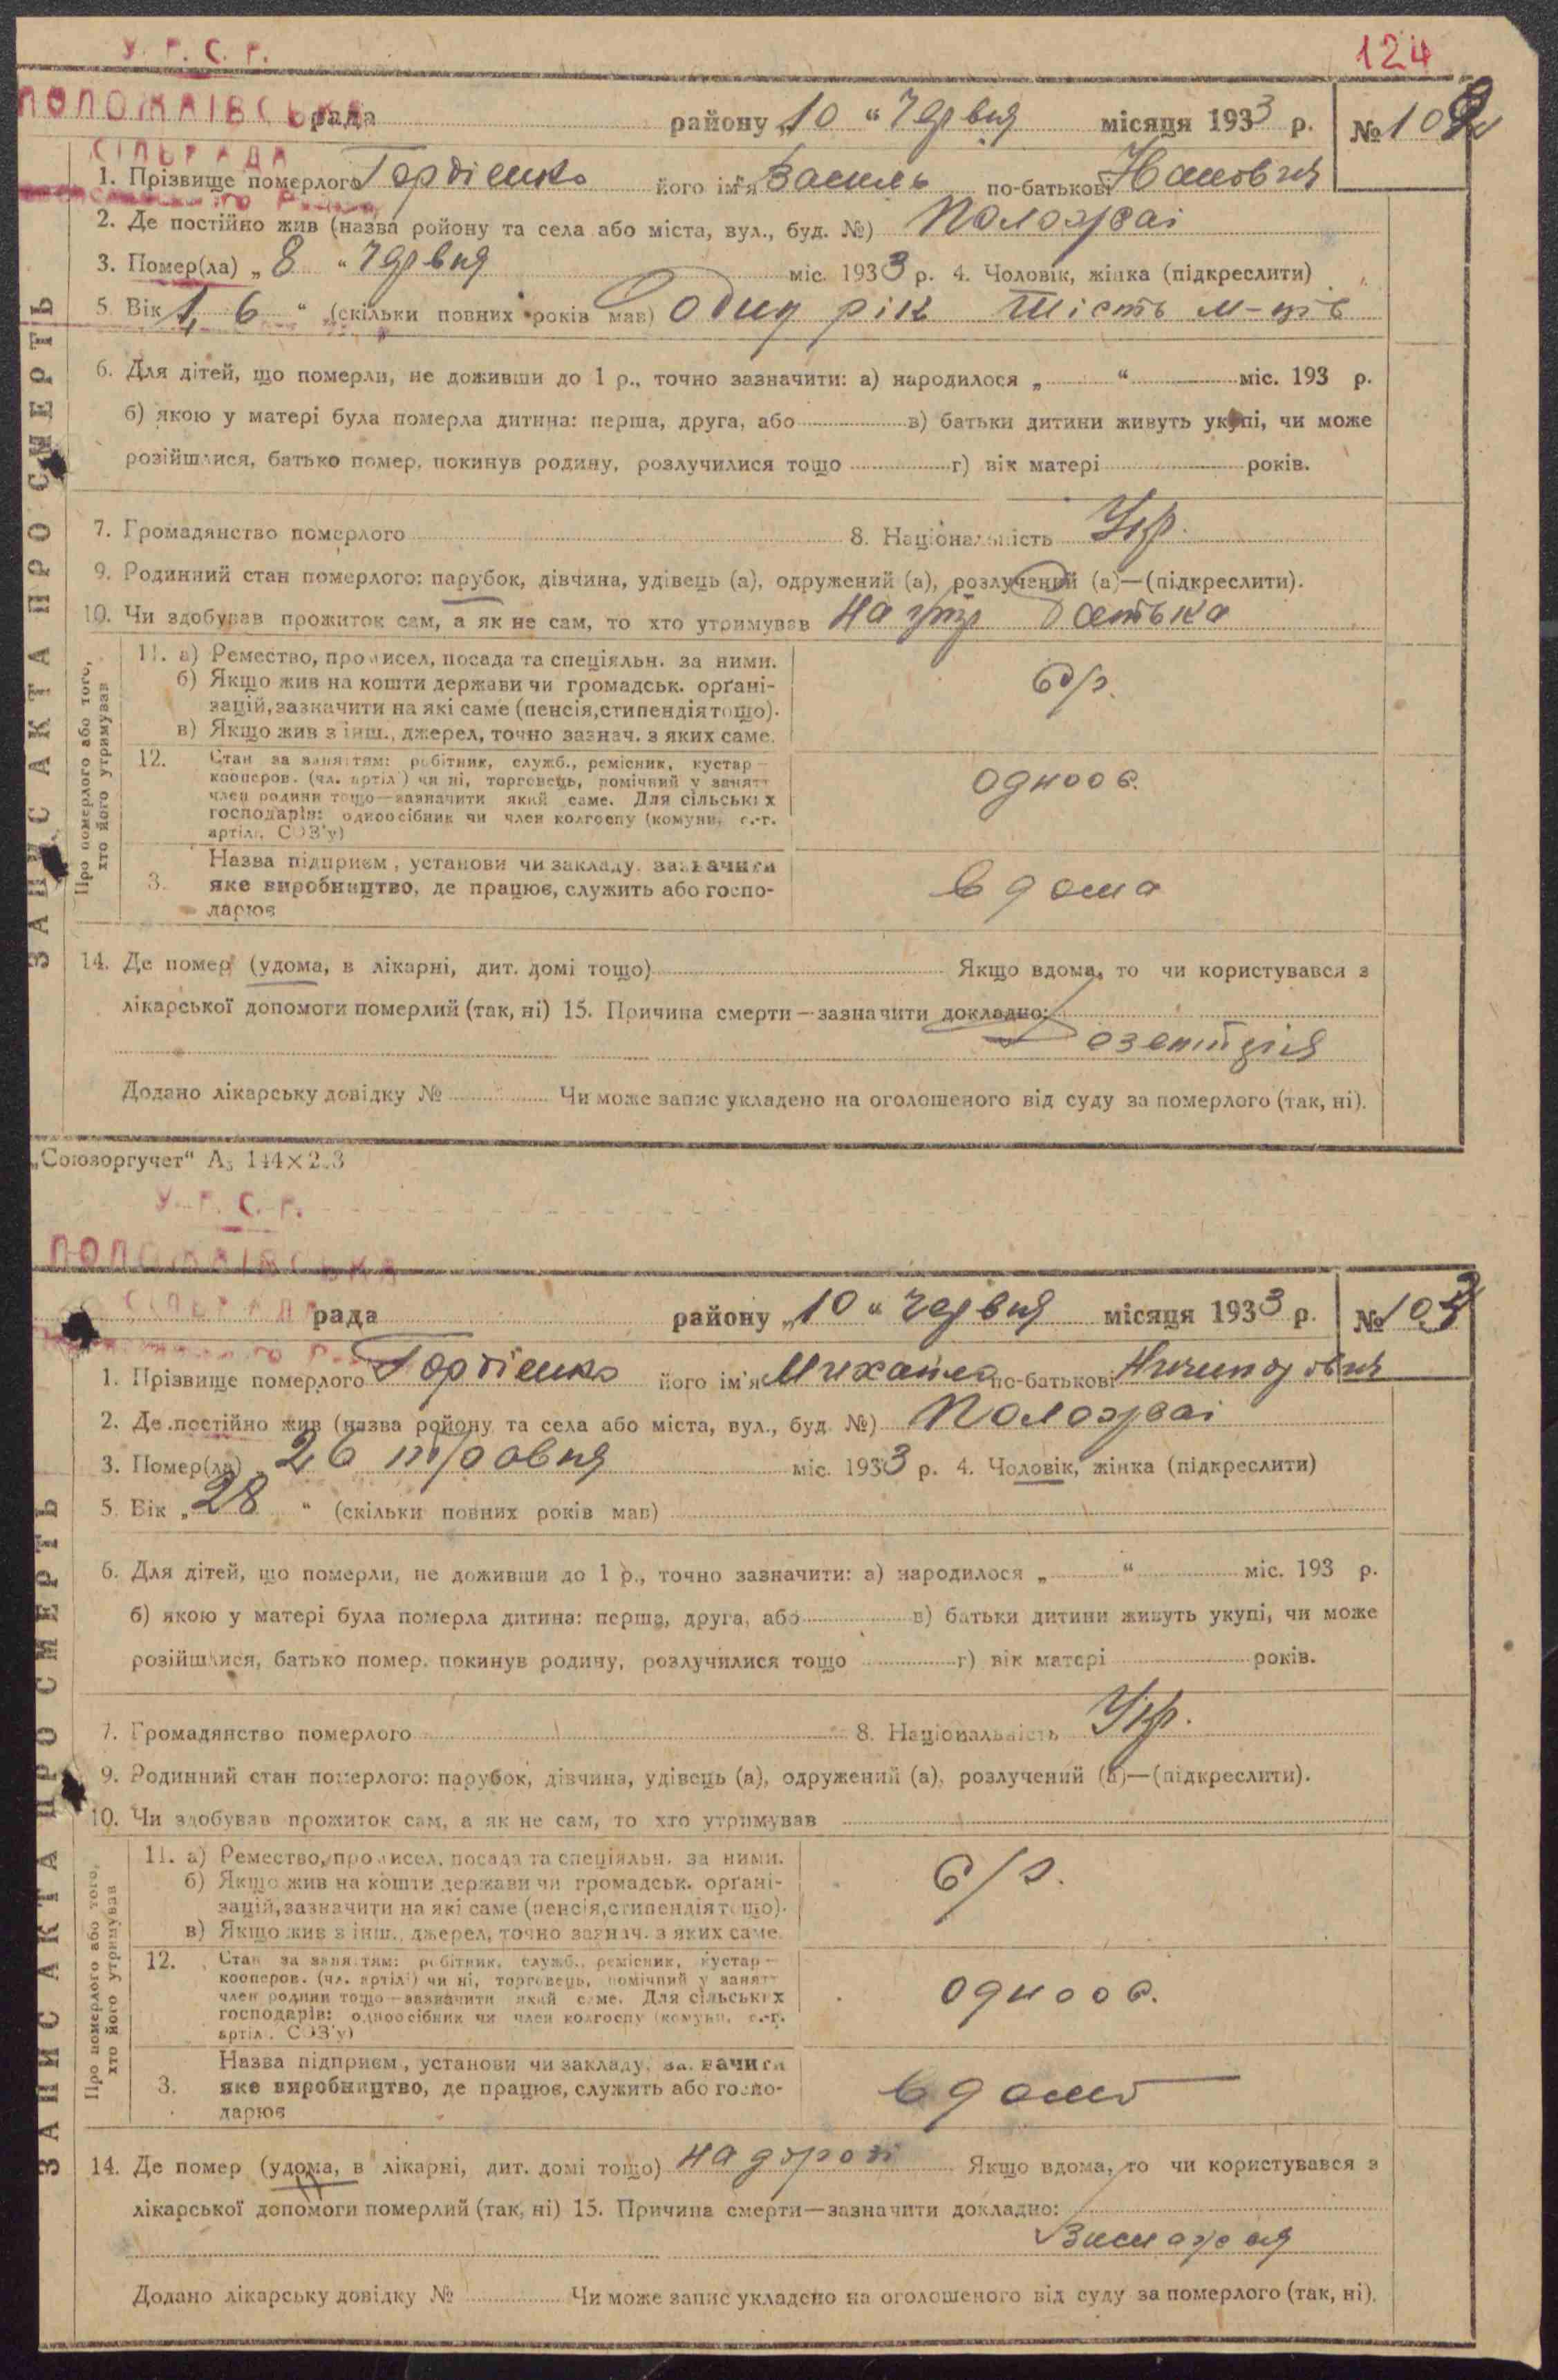 У. Р. С. Р.
124
ПОЛОЖАІВСЬКА рада району „10 “ Червня місяця 1933 р. № 10
СІЛЬРАДА
1. Прізвище померлого Гордієнко його ім'я Василь по-батькові
2. Де постійно жив (назва ройону та села або міста, вул., буд. №) Положаі
3. Помер(ла) „ 8 “ Червня міс. 1933 р. 4. Чоловік, жінка (підкреслити)
5. Вік 1, 6 “ (скільки повних років мав) Один рік шість м-ців
6. Для дітей, що померли, не доживши до 1 р., точно зазначити: а) народилося „ “ міс. 193 р.
б) якою у матері була померла дитина: перша, друга, або в) батьки дитини живуть укупі, чи може
розійшлися, батько помер, покинув родину, розлучилися тощо г) вік матері років.
7. Громадянство померлого 8. Національність Укр.
9. Родинний стан померлого: парубок, дівчина, удівець (а), одружений (а), розлучений (а)—(підкреслити).
10. Чи здобував прожиток сам, а як не сам, то хто утримував на утр батька
Про померлого або того, хто його утримував
11. а) Ремество, промисел, посада та спеціяльн. за ними.
б) Якщо жив на кошти держави чи громадськ. орґані-
зацій, зазначити на які саме (пенсія, стипендія тощо).
в) Якщо жив з інш., джерел, точно зазнач. з яких саме.
б/р.
12. Стан за заняттям: робітник, служб., ремісник, кустар—
кооперов. (чл. артілі) чи ні, торговець, помічний у занятт
член родини тощо—зазначити який саме. Для сільських
господарів: одноосібник чи член колгоспу (комуни, с.-г.
артілі, СОЗ'у)
одноос.
3. Назва підприєм, установи чи закладу, зазначити
яке виробництво, де працює, служить або госпо-
дарює
вдома
14. Де помер (удома, в лікарні, дит. домі тощо) Якщо вдома, то чи користувався з
лікарської допомоги померлий (так, ні) 15. Причина смерти—зазначити докладно:
Дезентірія
Додано лікарську довідку № Чи може запис укладено на оголошеного від суду за померлого (так, ні).
ЗАПИС АКТА ПРО СМЕРТЬ
„Союзоргучет“ А₅ 144×203
У. Р. С. Р.
ПОЛОЖАІВСЬКА
СІЛЬРАДА рада району „10 “ червня місяця 1933 р. № 103
1. Прізвище померлого Гордієнко його ім'я Михайло по-батькові Ничипорович
2. Де постійно жив (назва ройону та села або міста, вул., буд. №) Положаі
3. Помер(ла) 26 травня міс. 1933 р. 4. Чоловік, жінка (підкреслити)
5. Вік „28 “ (скільки повних років мав)
6. Для дітей, що померли, не доживши до 1 р., точно зазначити: а) народилося „ “ міс. 193 р.
б) якою у матері була померла дитина: перша, друга, або в) батьки дитини живуть укупі, чи може
розійшлися, батько помер, покинув родину, розлучилися тощо г) вік матері років.
7. Громадянство померлого 8. Національність Укр.
9. Родинний стан померлого: парубок, дівчина, удівець (а), одружений (а), розлучений (а)—(підкреслити).
10. Чи здобував прожиток сам, а як не сам, то хто утримував
Про померлого або того, хто його утримував
11. а) Ремество, промисел, посада та спеціяльн. за ними.
б) Якщо жив на кошти держави чи громадськ. орґані-
зацій, зазначити на які саме (пенсія, стипендія тощо).
в) Якщо жив з інш., джерел, точно зазнач. з яких саме.
б/р.
12. Стан за заняттям: робітник, служб., ремісник, кустар—
кооперов. (чл. артілі) чи ні, торговець, помічний у занятт
член родини тощо—зазначити який саме. Для сільських
господарів: одноосібник чи член колгоспу (комуни, с.-г.
артілі, СОЗ'у)
одноос.
3. Назва підприєм, установи чи закладу, зазначити
яке виробництво, де працює, служить або госпо-
дарює
вдома
14. Де помер (удома, в лікарні, дит. домі тощо) на дорозі Якщо вдома, то чи користувався з
лікарської допомоги померлий (так, ні) 15. Причина смерти—зазначити докладно:
Додано лікарську довідку № Чи може запис укладено на оголошеного від суду за померлого (так, ні).
ЗАПИС АКТА ПРО СМЕРТЬ